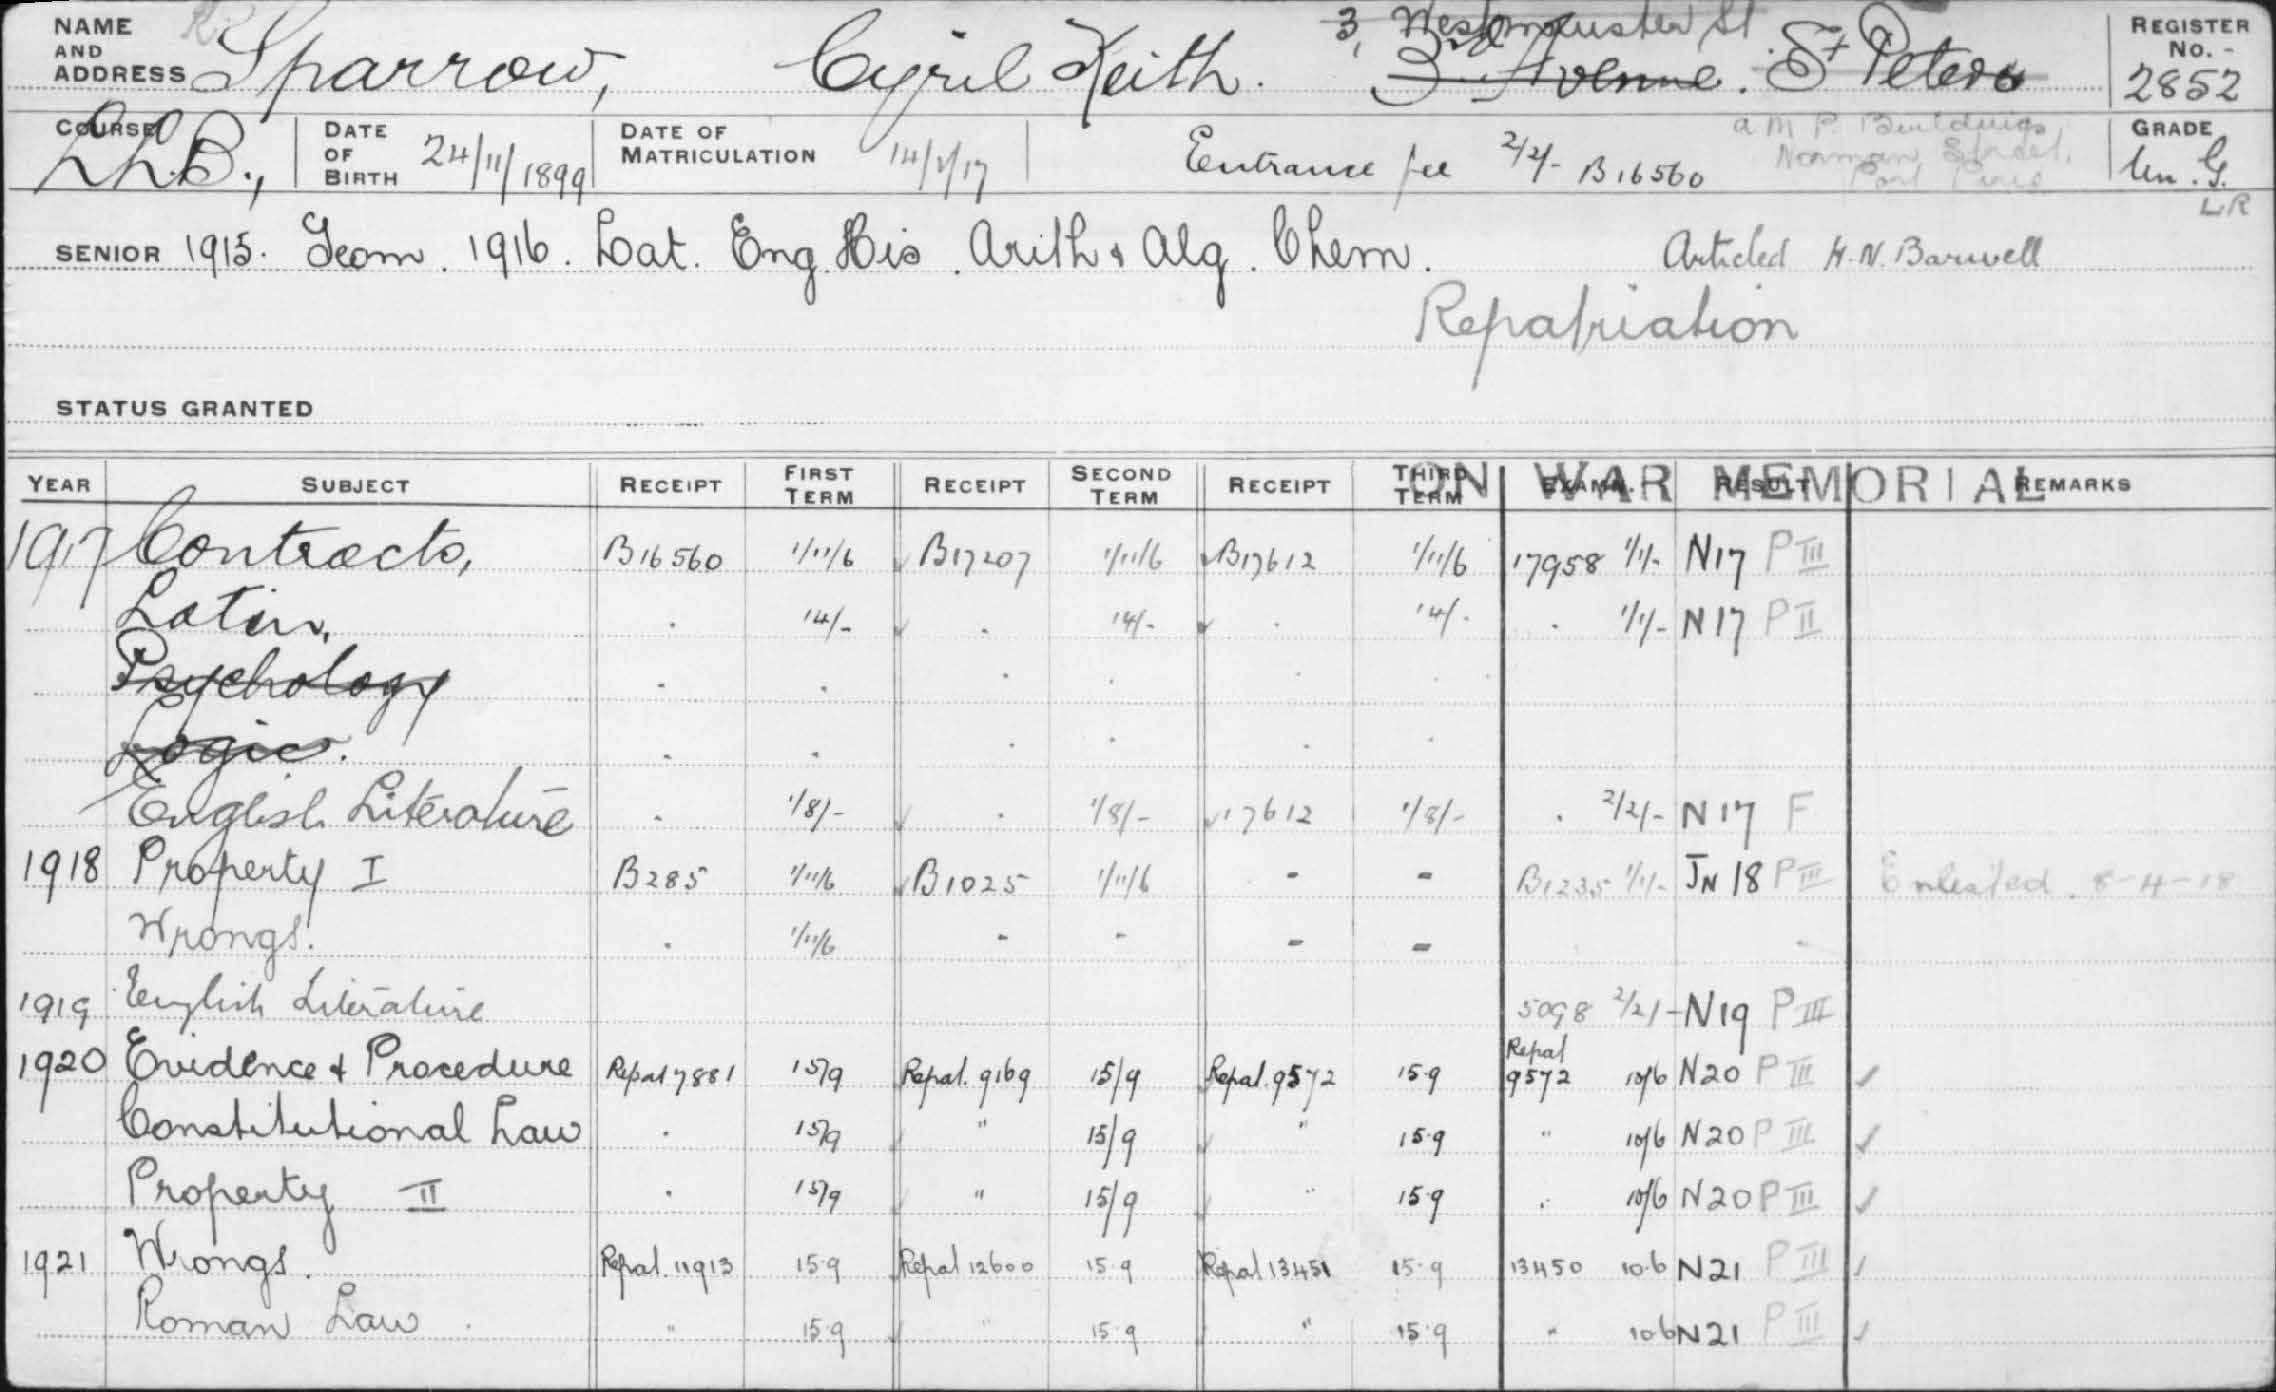 NAME AND ADDRESS Sparrow, Cyril Keith. 3, Westminster St 3rd Avenue. St Peters REGISTER No. - 2852
COURSE LL.B., DATE OF BIRTH 24/11/1899 DATE OF MATRICULATION 14/ /17 Entrance fee 2/2/- B16560 A M P. Buildings, Norman Street, Port Pirie GRADE Un. G.
LR
SENIOR 1915. Geom. 1916. Lat. Eng. His. Arith & Alg. Chem. Articled H.N. Barwell
Repatriation
STATUS GRANTED
ON WAR MEMORIAL
YEAR SUBJECT RECEIPT FIRST TERM RECEIPT SECOND TERM RECEIPT THIRD TERM EXAMN. RESULT REMARKS
1917 Contracts, B16560 1/11/6 B17207 1/11/6 B17612 1/11/6 17958 1/1/- N17 P III
Latin, . 14/- . 14/- . 14/- . 1/1/- N17 P II
Psychology . . . . . .
Logic. . . . . . .
English Literature . 1/8/- . 1/8/- 17612 1/8/- . 2/2/- N17 F
1918 Property I B285 1/11/6 B1025 1/11/6 - - B1235 1/1/- JN 18 P III Enlisted. 8-4-18
Wrongs. . 1/11/6 - - - -
1919 English Literature 5098 2/2/- N19 P III
1920 Evidence & Procedure Repat 7881 15/9 Repat. 9169 15/9 Repat. 9572 15.9 Repat 9572 10/6 N20 P III ✓
Constitutional Law . 15/9 " 15/9 " 15.9 " 10/6 N20 P III ✓
Property II . 15/9 " 15/9 " 15.9 " 10/6 N20 P III ✓
1921 Wrongs. Repat. 11913 15.9 Repat 12600 15.9 Repat 13451 15.9 13450 10.6 N21 P III ✓
Roman Law. " 15.9 " 15.9 " 15.9 " 10.6 N21 P III ✓